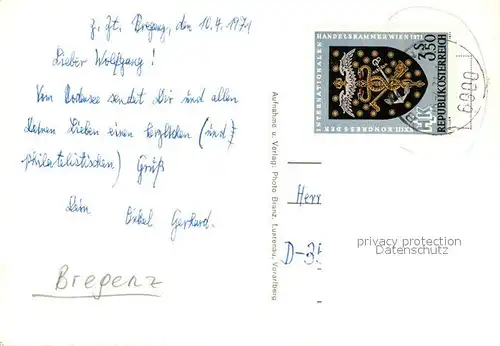 z. Zt. Bregenz, den 10.4.1971
Lieber Wolfgang!
Vom Bodensee sendet Dir und allen
Deinen Lieben einen herzlichen (und
philatelistischen) Gruß
Dein Onkel Gerhard.
Bregenz
Aufnahme u. Verlag: Photo Branz, Lustenau, Vorarlberg
XXIII. KONGRESS DER
INTERNATIONALEN
HANDELSKAMMER WIEN 1971
S 3.50
REPUBLIK ÖSTERREICH
6900
Herr
D-35
privacy protection
Datenschutz